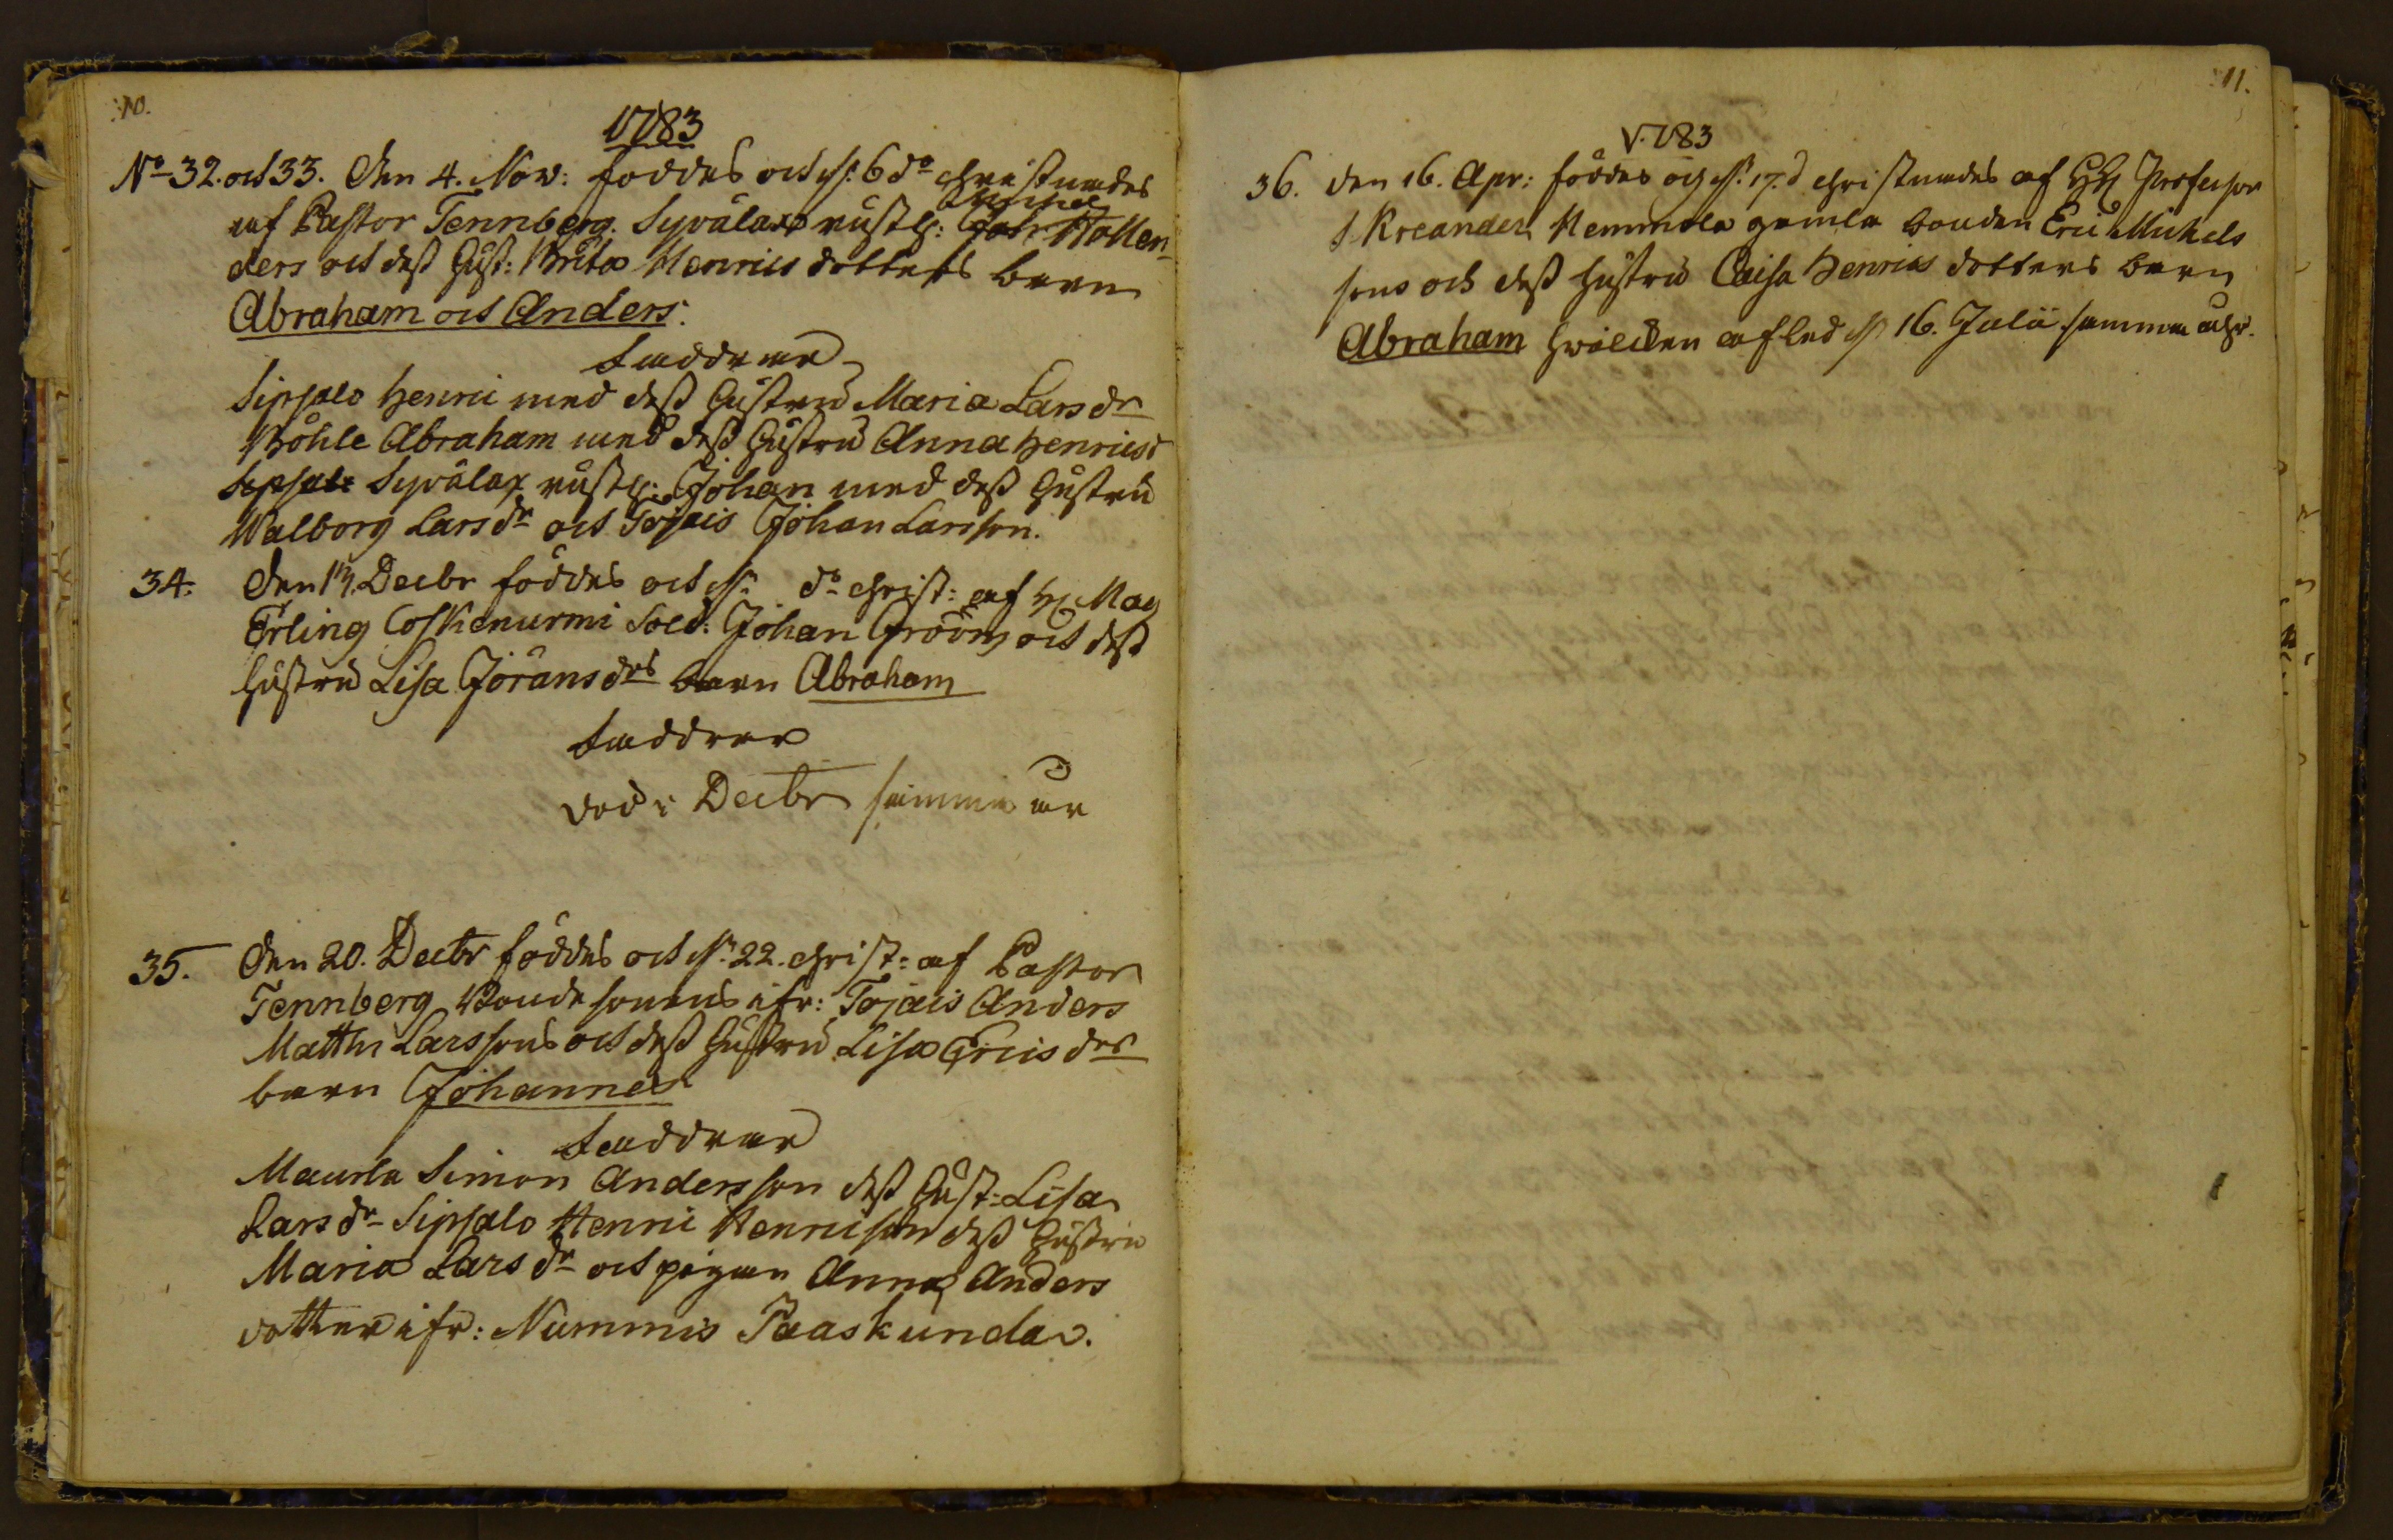 10.
1783
No 32. och 33. Den 4. Nov: föddes och d. 6 do christnades
af Pastor Tennberg. Syvälax rusth: Johan Hollen-
ders och dess Hust: Brita Henrics dotters barn
Abraham och Anders.
Faddrar
Sipsalo Henric med dess Hustru Maria Larsdr
Böhle Abraham med dess Hustru Anna Henricsd
Sipsalo Syvälax rusth: Johan med dess Hustru
Walborg Larsdr och Tojais Johan Larsson.
34. Den Decbr föddes och d. do christ: af H Mag
Erling Coskenurmi Sold: Johan Grööns och dess
Hustru Lisa Jöransdrs barn Abraham
Faddrar
död i Decbr samma år
35. Den 20. Decbr föddes och d. 22. christ: af Pastor
Tennberg Bondesonens ifr: Tojais Anders
Matths Larssons och dess Hustru Lisa Ericsdrs
barn Johannes
Faddrar
Maurla Simon Andersson dess Hust: Lisa
Larsdr Sipsalo Henric Henricson dess Hustru
Maria Larsdr och pigan Anna Anders
dotter ifr: Nummis Paaskunda.
11.
1783
36. den 16. Apr: föddes och d. 17. d christnades af HH Professor
S. Kreander Hemmola gamla bonden Eric Michels
sons och dess Hustru Caisa Henrics dotters barn
Abraham hvilcken afled d 16. Julii samma åhr.